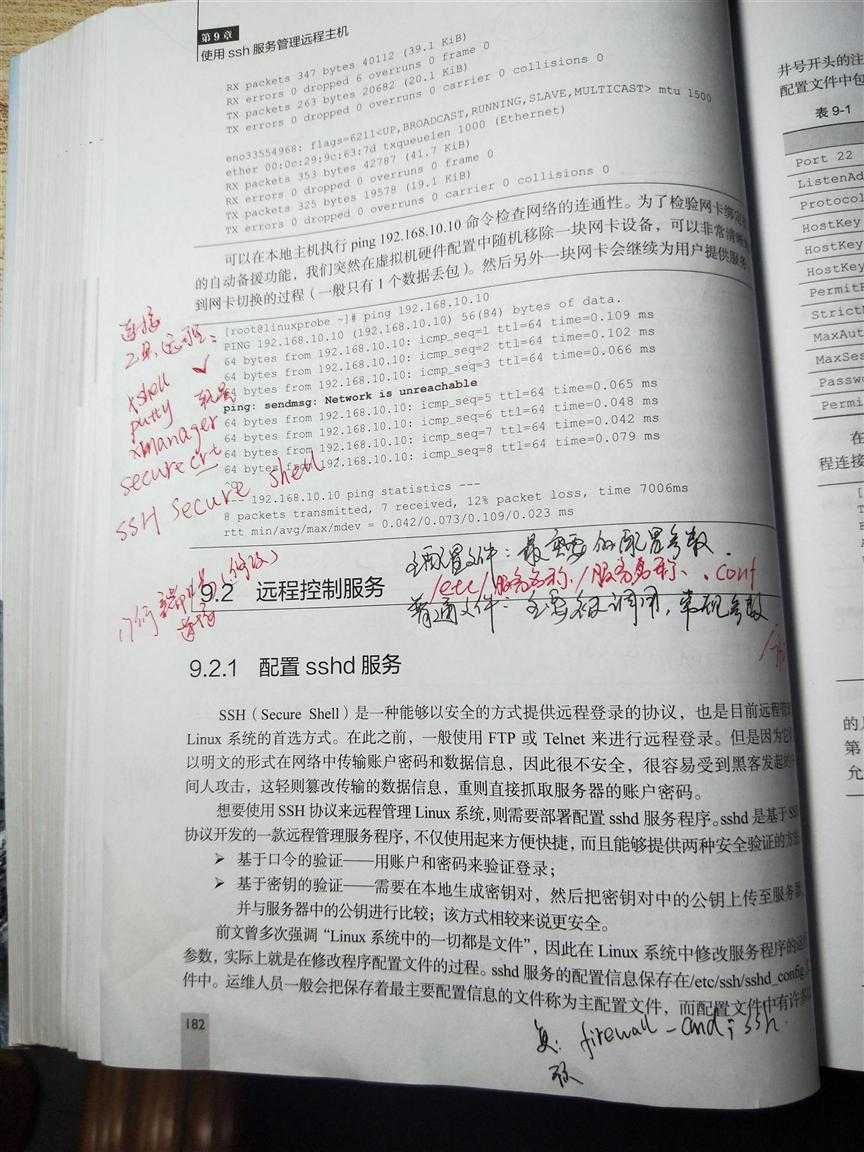 第9章
使用 ssh 服务管理远程主机
RX packets 347 bytes 40112 (39.1 KiB)
RX errors 0 dropped 6 overruns 0 frame 0
TX packets 263 bytes 20682 (20.1 KiB)
TX errors 0 dropped 0 overruns 0 carrier 0 collisions 0
eno33554968: flags=6211<UP,BROADCAST,RUNNING,SLAVE,MULTICAST> mtu 1500
ether 00:0c:29:9c:63:7d txqueuelen 1000 (Ethernet)
RX packets 353 bytes 42787 (41.7 KiB)
RX errors 0 dropped 0 overruns 0 frame 0
TX packets 325 bytes 19578 (19.1 KiB)
TX errors 0 dropped 0 overruns 0 carrier 0 collisions 0
可以在本地主机执行 ping 192.168.10.10 命令检查网络的连通性。为了检验网卡绑定
的自动备援功能，我们突然在虚拟机硬件配置中随机移除一块网卡设备，可以非常清晰
到网卡切换的过程（一般只有 1 个数据丢包）。然后另外一块网卡会继续为用户提供服务
[root@linuxprobe ~]# ping 192.168.10.10
PING 192.168.10.10 (192.168.10.10) 56(84) bytes of data.
64 bytes from 192.168.10.10: icmp_seq=1 ttl=64 time=0.109 ms
64 bytes from 192.168.10.10: icmp_seq=2 ttl=64 time=0.102 ms
64 bytes from 192.168.10.10: icmp_seq=3 ttl=64 time=0.066 ms
ping: sendmsg: Network is unreachable
64 bytes from 192.168.10.10: icmp_seq=5 ttl=64 time=0.065 ms
64 bytes from 192.168.10.10: icmp_seq=6 ttl=64 time=0.048 ms
64 bytes from 192.168.10.10: icmp_seq=7 ttl=64 time=0.042 ms
64 bytes from 192.168.10.10: icmp_seq=8 ttl=64 time=0.079 ms
192.168.10.10 ping statistics ---
8 packets transmitted, 7 received, 12% packet loss, time 7006ms
rtt min/avg/max/mdev = 0.042/0.073/0.109/0.023 ms
连接
工具
xshell
putty
xmanager
secure crt
SSH Secure Shell
主配置文件：最重要的配置参数
9.2 远程控制服务
/etc/服务名称/服务名称.conf
普通文件：主要被调用，常规参数
9.2.1 配置 sshd 服务
SSH（Secure Shell）是一种能够以安全的方式提供远程登录的协议，也是目前远程管
Linux 系统的首选方式。在此之前，一般使用 FTP 或 Telnet 来进行远程登录。但是因为它
以明文的形式在网络中传输账户密码和数据信息，因此很不安全，很容易受到黑客发起的
间人攻击，这轻则篡改传输的数据信息，重则直接抓取服务器的账户密码。
想要使用 SSH 协议来远程管理 Linux 系统，则需要部署配置 sshd 服务程序。sshd 是基于 SS
协议开发的一款远程管理服务程序，不仅使用起来方便快捷，而且能够提供两种安全验证的方法
➢ 基于口令的验证——用账户和密码来验证登录；
➢ 基于密钥的验证——需要在本地生成密钥对，然后把密钥对中的公钥上传至服务器
并与服务器中的公钥进行比较；该方式相较来说更安全。
前文曾多次强调“Linux 系统中的一切都是文件”，因此在 Linux 系统中修改服务程序的运
参数，实际上就是在修改程序配置文件的过程。sshd 服务的配置信息保存在/etc/ssh/sshd_config
件中。运维人员一般会把保存着最主要配置信息的文件称为主配置文件，而配置文件中有许多
182
firewall-cmd ; ssh
井号开头的注
配置文件中包
表 9-1
Port 22
ListenAd
Protocol
HostKey
HostKey
HostKey
PermitR
Strict
MaxAut
MaxSes
Passw
Permi
在
程连接
的
第
允